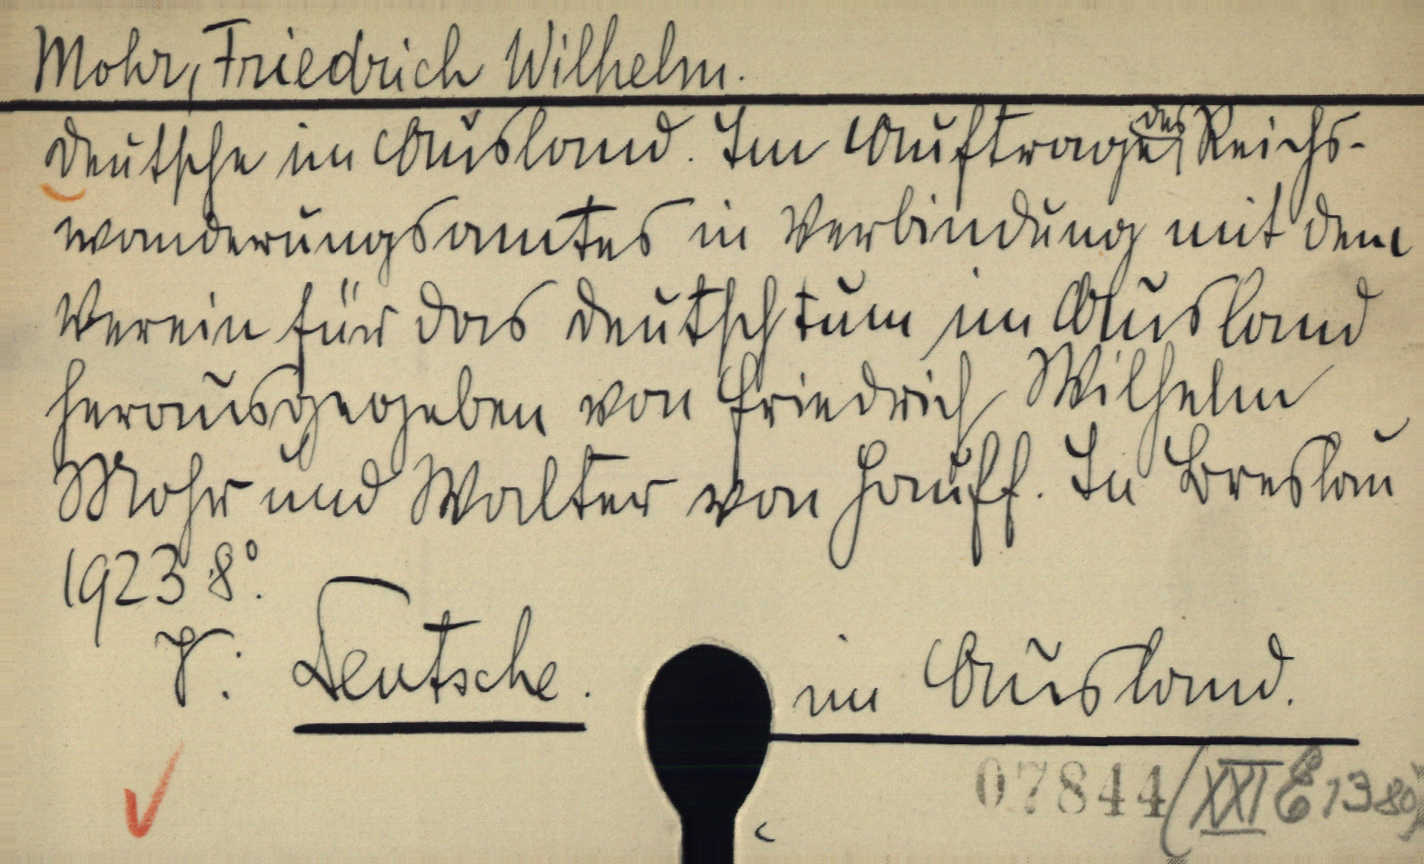 Mohr, Friedrich Wilhelm.
Deutsche im Ausland. Im Auftrage des Reichs-
wanderungsamtes in Verbindung mit dem
Verein für das Deutschtum im Ausland
herausgegeben von Friedrich Wilhelm
Mohr und Walter von Hauff. In Breslau
1923 8°.
V: Deutsche. im Ausland.
07844 (XXI E 1380)